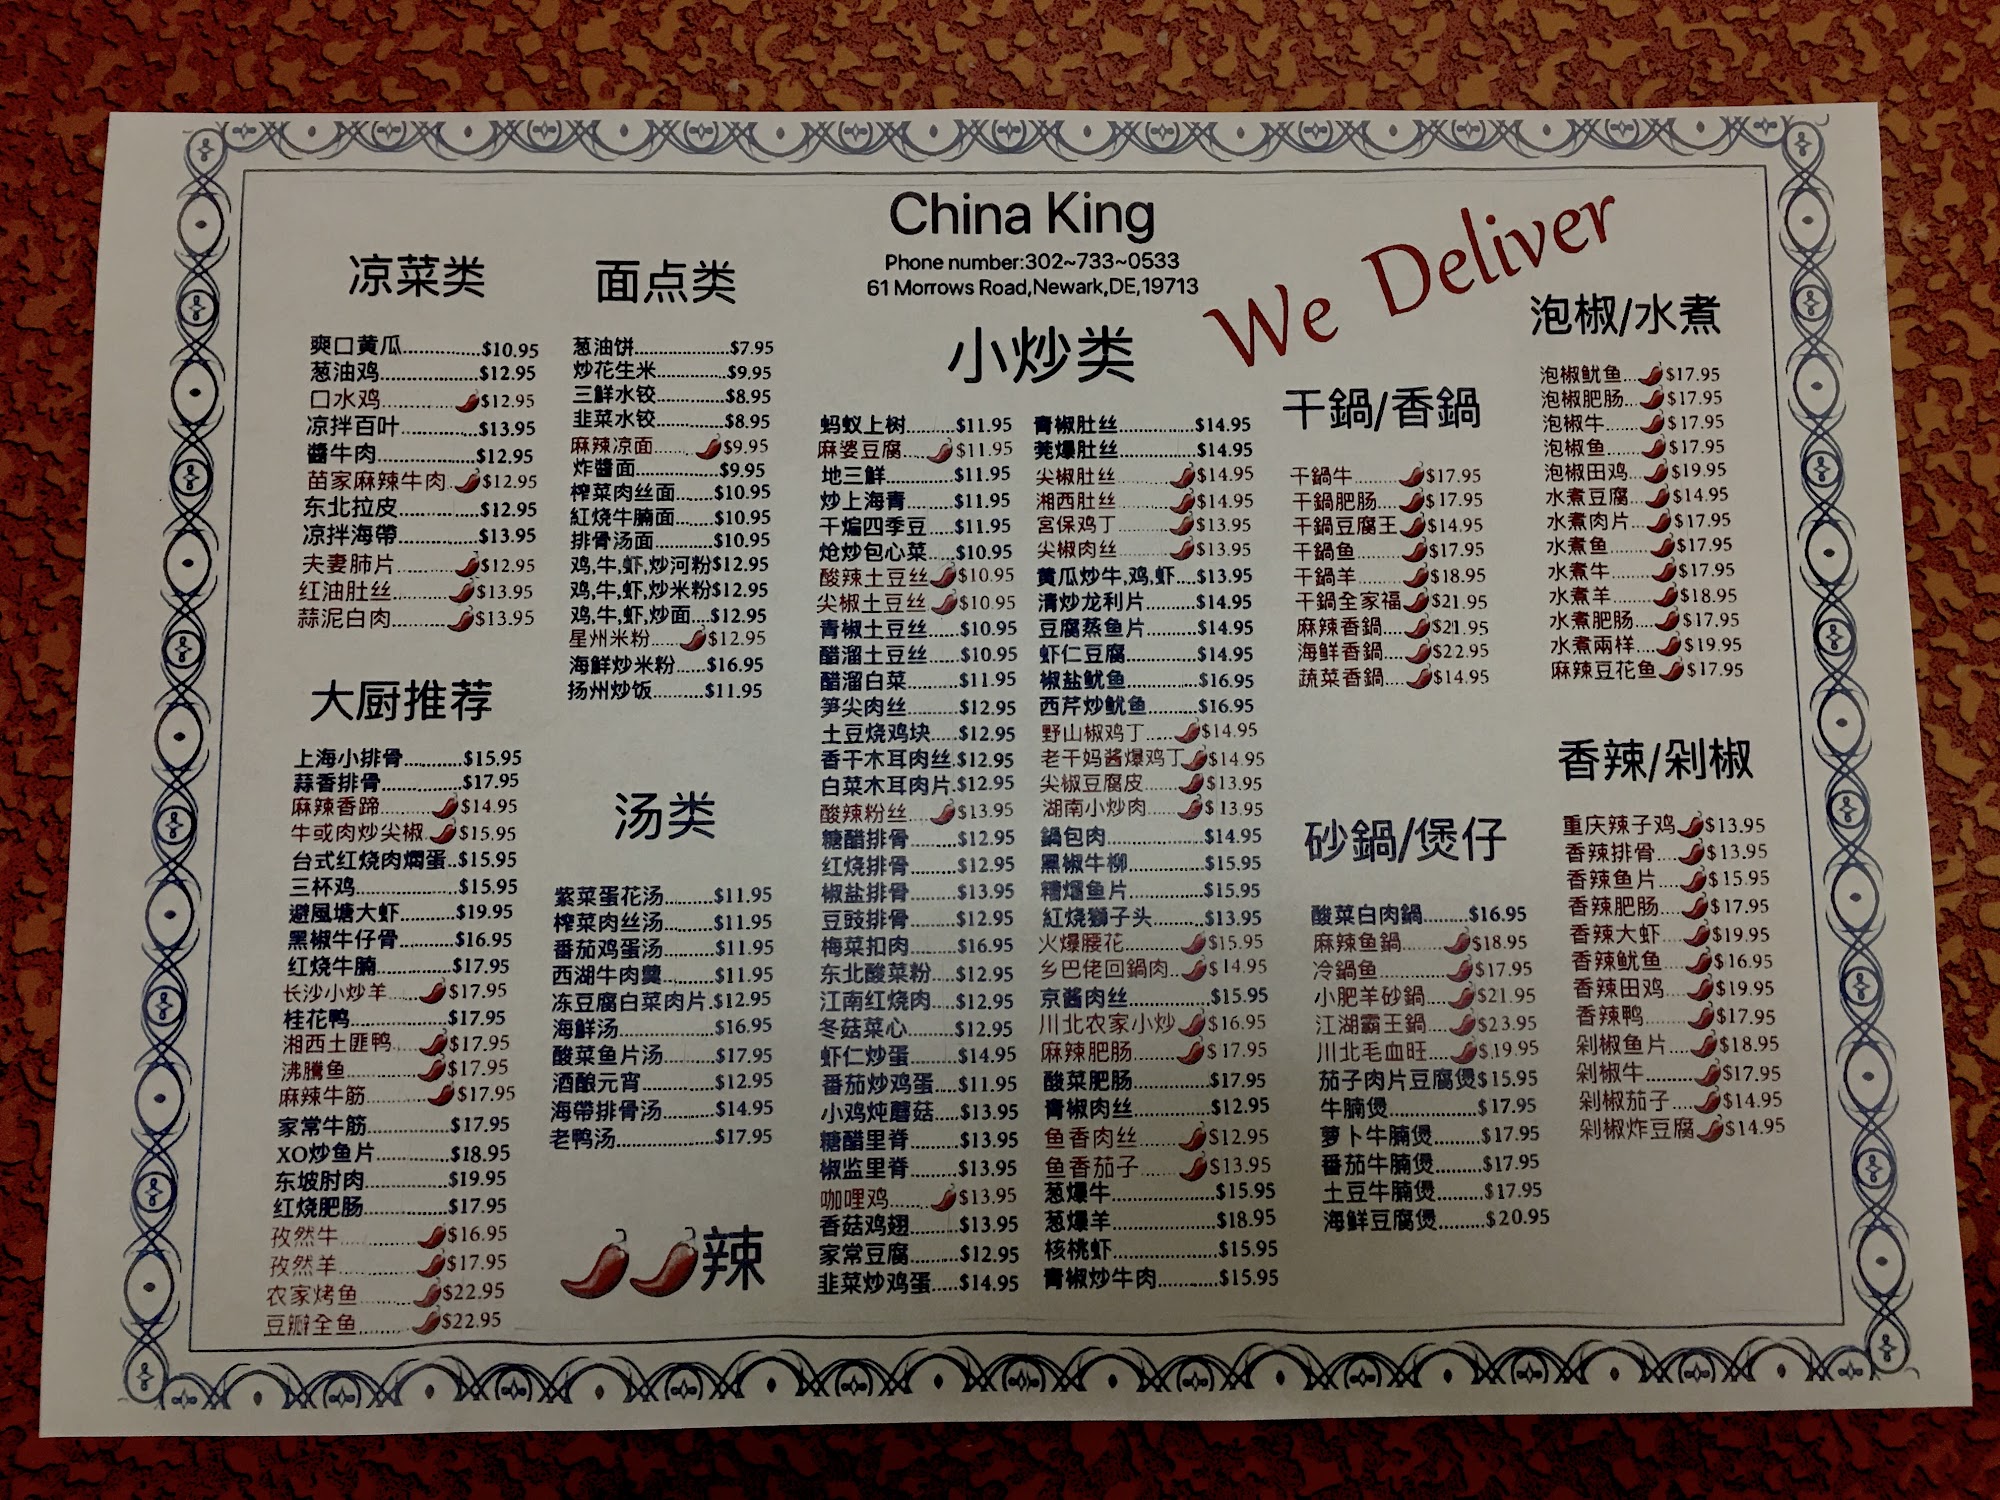 China King
Phone number:302~733~0533
61 Morrows Road,Newark,DE,19713
We Deliver
凉菜类
爽口黄瓜..............$10.95
葱油鸡..................$12.95
口水鸡.............$12.95
凉拌百叶..............$13.95
醬牛肉..................$12.95
苗家麻辣牛肉.$12.95
东北拉皮...............$12.95
凉拌海帶...............$13.95
夫妻肺片...........$12.95
红油肚丝...........$13.95
蒜泥白肉...........$13.95
大厨推荐
上海小排骨...........$15.95
蒜香排骨...............$17.95
麻辣香蹄...........$14.95
牛或肉炒尖椒.$15.95
台式红烧肉焖蛋..$15.95
三杯鸡...................$15.95
避風塘大虾...........$19.95
黑椒牛仔骨...........$16.95
红烧牛腩...............$17.95
长沙小炒羊......$17.95
桂花鸭...................$17.95
湘西土匪鸭......$17.95
沸騰鱼..............$17.95
麻辣牛筋...........$17.95
家常牛筋................$17.95
XO炒鱼片..............$18.95
东坡肘肉................$19.95
红烧肥肠................$17.95
孜然牛..............$16.95
孜然羊..............$17.95
农家烤鱼..........$22.95
豆瓣全鱼..........$22.95
面点类
葱油饼...................$7.95
炒花生米..............$9.95
三鮮水铰..............$8.95
韭菜水铰..............$8.95
麻辣凉面.........$9.95
炸醬面..................$9.95
榨菜肉丝面..........$10.95
紅烧牛腩面..........$10.95
排骨汤面..............$10.95
鸡,牛,虾,炒河粉$12.95
鸡,牛,虾,炒米粉$12.95
鸡,牛,虾,炒面....$12.95
星州米粉......$12.95
海鮮炒米粉......$16.95
扬州炒饭..........$11.95
汤类
紫菜蛋花汤..........$11.95
榨菜肉丝汤..........$11.95
番茄鸡蛋汤..........$11.95
西湖牛肉羹..........$11.95
冻豆腐白菜肉片.$12.95
海鮮汤...................$16.95
酸菜鱼片汤..........$17.95
酒酿元宵...............$12.95
海帶排骨汤..........$14.95
老鸭汤...................$17.95
辣
小炒类
蚂蚁上树.........$11.95
麻婆豆腐.....$11.95
地三鮮.............$11.95
炒上海青.........$11.95
干煸四季豆.....$11.95
炝炒包心菜.....$10.95
酸辣土豆丝$10.95
尖椒土豆丝$10.95
青椒土豆丝.....$10.95
醋溜土豆丝.....$10.95
醋溜白菜.........$11.95
笋尖肉丝.........$12.95
土豆烧鸡块.....$12.95
香干木耳肉丝.$12.95
白菜木耳肉片.$12.95
酸辣粉丝.....$13.95
糖醋排骨.........$12.95
红烧排骨.........$12.95
椒盐排骨.........$13.95
豆豉排骨.........$12.95
梅菜扣肉.........$16.95
东北酸菜粉.....$12.95
江南红烧肉.....$12.95
冬菇菜心.........$12.95
虾仁炒蛋.........$14.95
番茄炒鸡蛋.....$11.95
小鸡炖蘑菇.....$13.95
糖醋里脊.........$13.95
椒监里脊.........$13.95
咖哩鸡........$13.95
香菇鸡翅.........$13.95
家常豆腐.........$12.95
韭菜炒鸡蛋.....$14.95
青椒肚丝..............$14.95
莞爆肚丝..............$14.95
尖椒肚丝..........$14.95
湘西肚丝..........$14.95
宮保鸡丁..........$13.95
尖椒肉丝..........$13.95
黄瓜炒牛,鸡,虾....$13.95
清炒龙利片..........$14.95
豆腐蒸鱼片..........$14.95
虾仁豆腐..............$14.95
椒盐鱿鱼..............$16.95
西芹炒鱿鱼..........$16.95
野山椒鸡丁.....$14.95
老干妈酱爆鸡丁$14.95
尖椒豆腐皮......$13.95
湖南小炒肉......$13.95
鍋包肉...................$14.95
黑椒牛柳...............$15.95
糟熘鱼片...............$15.95
紅烧獅子头..........$13.95
火爆腰花...........$15.95
乡巴佬回鍋肉..$14.95
京酱肉丝...............$15.95
川北农家小炒$16.95
麻辣肥肠..........$17.95
酸菜肥肠...............$17.95
青椒肉丝...............$12.95
鱼香肉丝..........$12.95
鱼香茄子..........$13.95
葱爆牛....................$15.95
葱爆羊....................$18.95
核桃虾....................$15.95
青椒炒牛肉...........$15.95
干鍋/香鍋
干鍋牛.........$17.95
干鍋肥肠....$17.95
干鍋豆腐王$14.95
干鍋鱼.........$17.95
干鍋羊.........$18.95
干鍋全家福$21.95
麻辣香鍋....$21.95
海鮮香鍋....$22.95
蔬菜香鍋....$14.95
砂鍋/煲仔
酸菜白肉鍋........$16.95
麻辣鱼鍋........$18.95
冷鍋鱼.............$17.95
小肥羊砂鍋....$21.95
江湖霸王鍋....$23.95
川北毛血旺....$19.95
茄子肉片豆腐煲$15.95
牛腩煲................$17.95
萝卜牛腩煲........$17.95
番茄牛腩煲........$17.95
土豆牛腩煲........$17.95
海鮮豆腐煲........$20.95
泡椒/水煮
泡椒鱿鱼...$17.95
泡椒肥肠...$17.95
泡椒牛.......$17.95
泡椒鱼.......$17.95
泡椒田鸡...$19.95
水煮豆腐...$14.95
水煮肉片...$17.95
水煮鱼.......$17.95
水煮牛.......$17.95
水煮羊.......$18.95
水煮肥肠...$17.95
水煮兩样...$19.95
麻辣豆花鱼$17.95
香辣/剁椒
重庆辣子鸡$13.95
香辣排骨....$13.95
香辣鱼片....$15.95
香辣肥肠....$17.95
香辣大虾....$19.95
香辣鱿鱼....$16.95
香辣田鸡....$19.95
香辣鸭........$17.95
剁椒鱼片....$18.95
剁椒牛.........$17.95
剁椒茄子....$14.95
剁椒炸豆腐$14.95